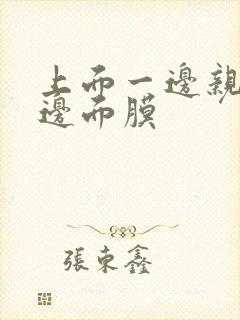 上面一邊親
邊面膜
張東鑫